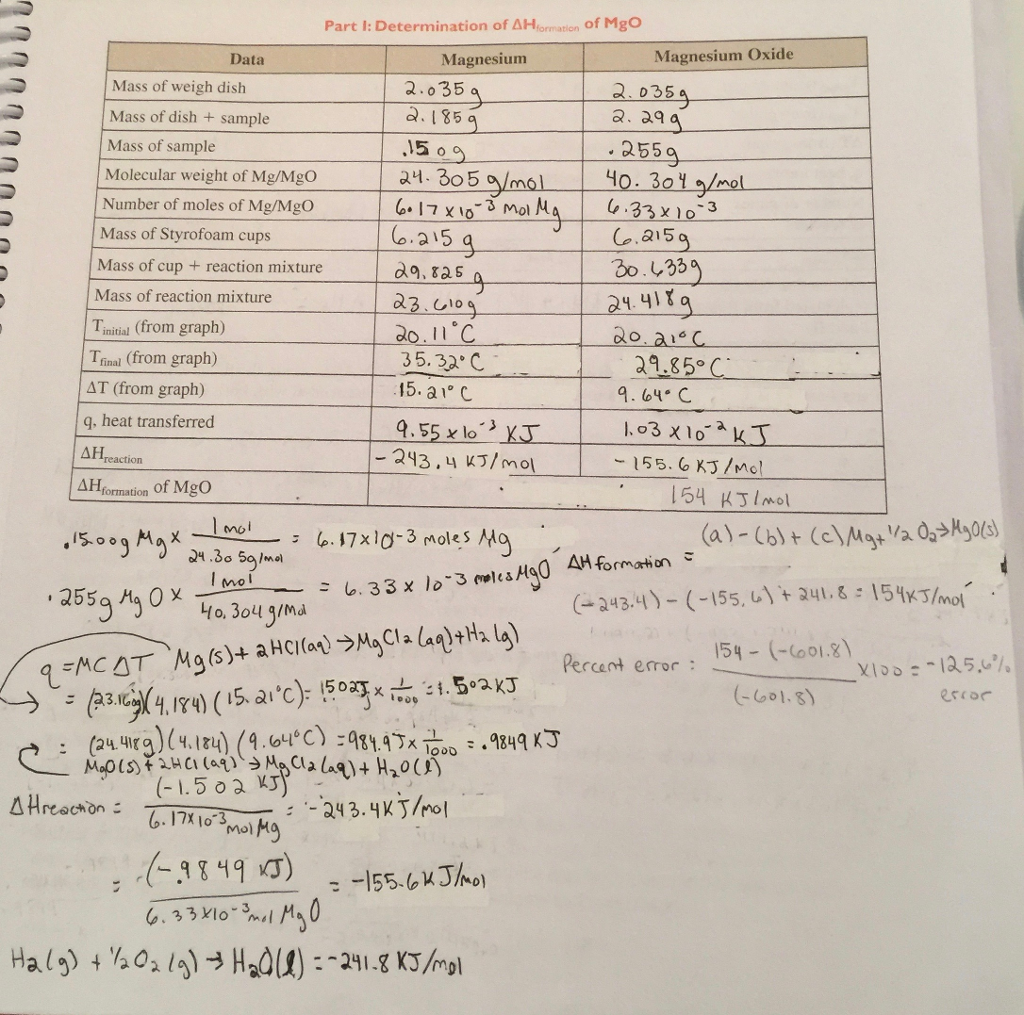 Part I: Determination of ΔHformation of MgO
Data Magnesium Magnesium Oxide
Mass of weigh dish 2.035g 2.035g
Mass of dish + sample 2.185g 2.29g
Mass of sample .150g .255g
Molecular weight of Mg/MgO 24.305 g/mol 40.304 g/mol
Number of moles of Mg/MgO 6.17 x 10-3 mol Mg 6.33 x 10-3
Mass of Styrofoam cups 6.215 g 6.215g
Mass of cup + reaction mixture 29.825 g 30.633g
Mass of reaction mixture 23.610g 24.418g
Tinitial (from graph) 20.11°C 20.21°C
Tfinal (from graph) 35.32°C 29.85°C
ΔT (from graph) 15.21°C 9.64°C
q, heat transferred 9.55 x 10-3 KJ 1.03 x 10-2 KJ
ΔHreaction -243.4 KJ/mol -155.6 KJ/mol
ΔHformation of MgO 154 KJ/mol
.1500g Mg x 1 mol / 24.305g/mol = 6.17x10-3 moles Mg
.255g MgO x 1 mol / 40.304 g/mol = 6.33 x 10-3 moles MgO
ΔH formation = (a) - (b) + (c) Mg + 1/2 O2 → MgO(s)
(-243.4) - (-155.6) + 241.8 = 154KJ/mol
Percent error: 154 - (-601.8) / (-601.8) x100 = -125.6% error
q = MCΔT Mg(s) + 2HCl(aq) → MgCl2(aq) + H2(g)
= (23.16g)(4.184)(15.21°C) = 1502J x 1/1000 = 1.502KJ
= (24.418g)(4.184)(9.64°C) = 984.9J x 1/1000 = .9849 KJ
MgO(s) + 2HCl(aq) → MgCl2(aq) + H2O(l)
ΔHreaction = (-1.502 KJ) / 6.17x10-3 mol Mg = -243.4KJ/mol
= (-.9849 KJ) / 6.33x10-3 mol MgO = -155.6KJ/mol
H2(g) + 1/2 O2(g) → H2O(l) = -241.8 KJ/mol